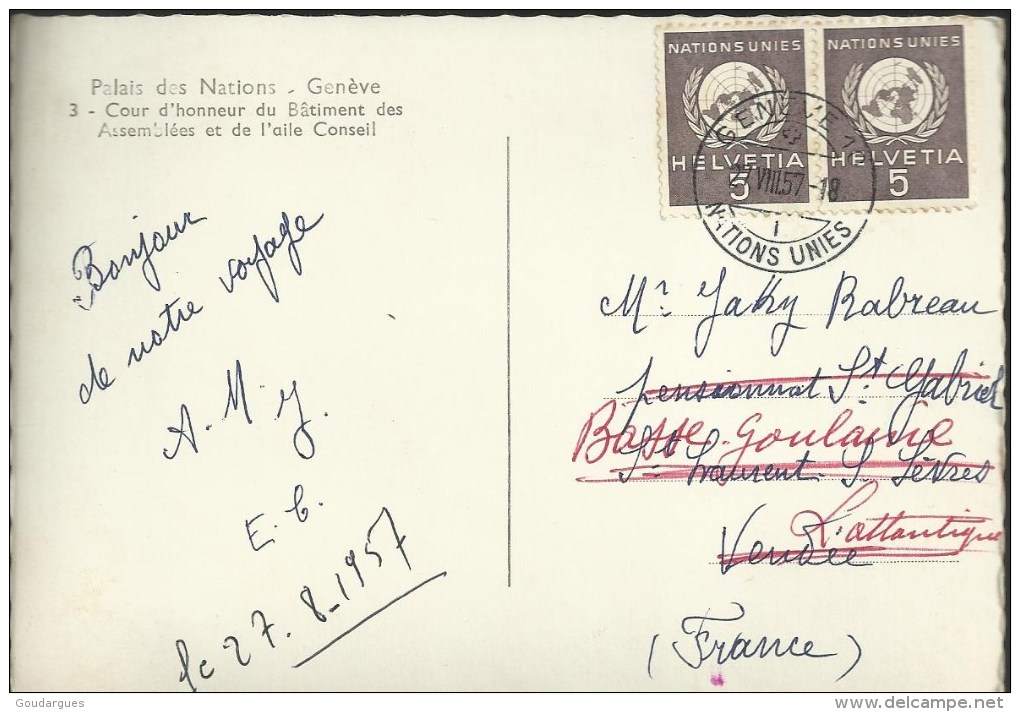 Palais des Nations - Genève
3 - Cour d'honneur du Bâtiment des
Assemblées et de l'aile Conseil
NATIONS UNIES
HELVETIA
5
NATIONS UNIES
HELVETIA
5
GENÈVE
27.VIII.57-18
1
NATIONS UNIES
Bonjour
de notre voyage
A. M. J.
E. C.
le 27. 8-1957
Mr Jaky Rabreau
pensionnat St Gabriel
Basse-Goulaine
St Laurent. S. Sèvres
L. atlantique
Vendée
(France)
Goudargues
www.delcampe.net